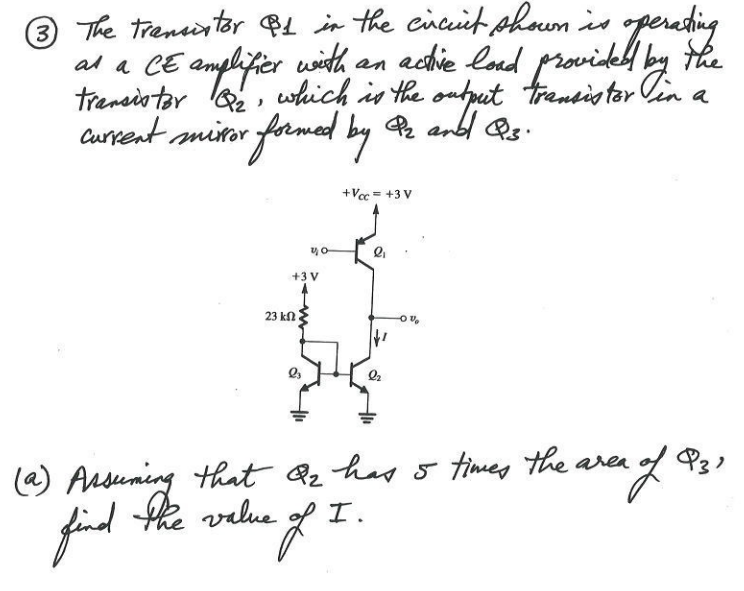 ③ The transistor Q1 in the circuit shown is operating
as a CE amplifier with an active load provided by the
transistor Q2, which is the output transistor in a
current mirror formed by Q2 and Q3.
+Vcc = +3 V
vi
Q1
+3 V
23 kΩ
vo
I
Q3
Q2
(a) Assuming that Q2 has 5 times the area of Q3,
find the value of I.